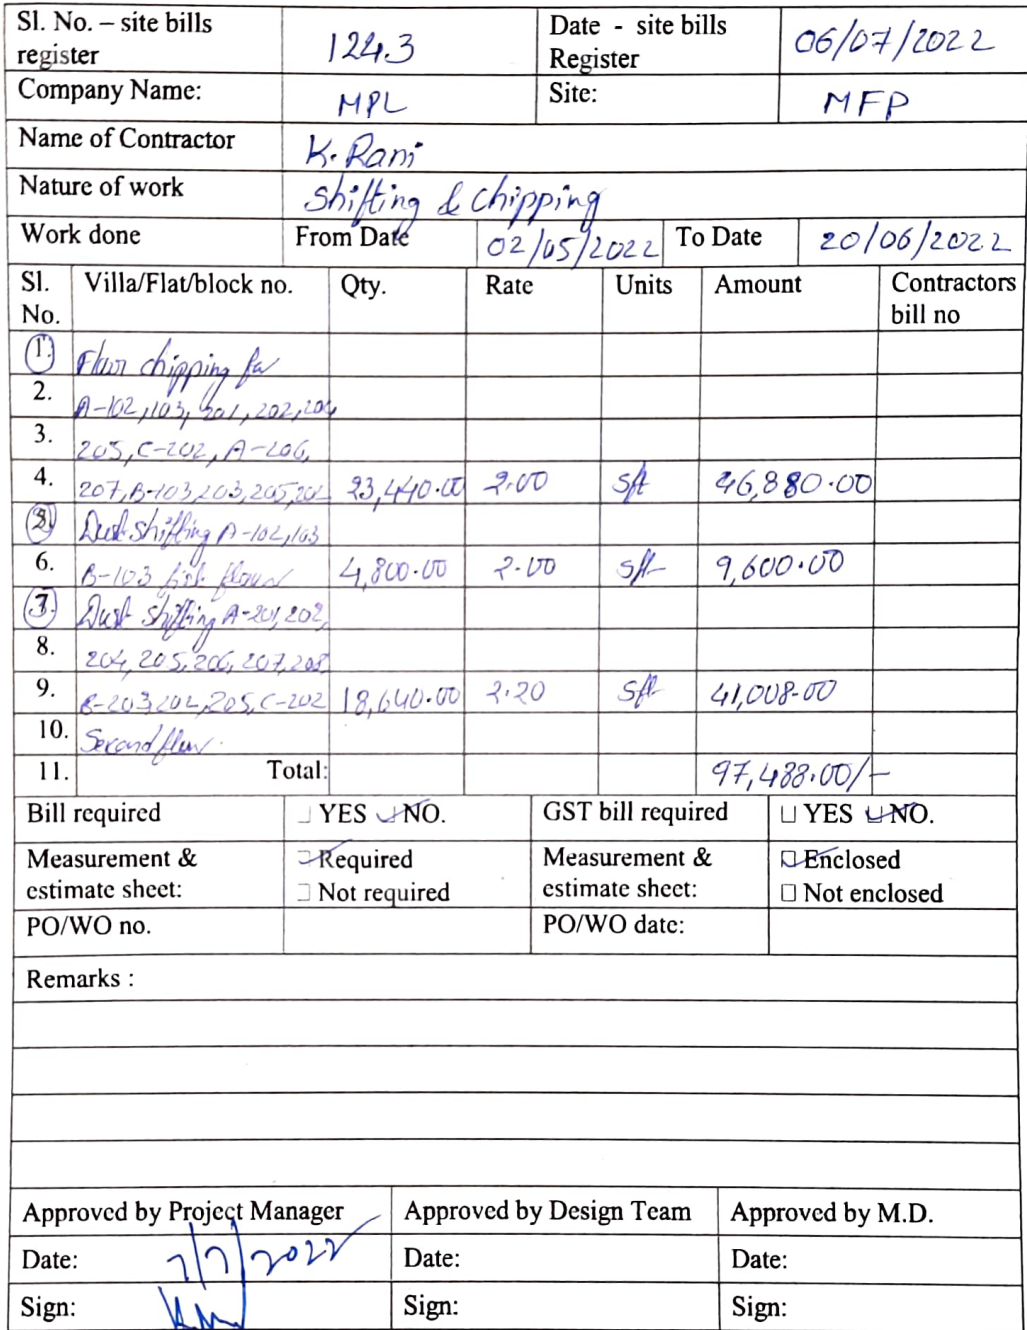 Sl. No. – site bills register 1243 Date - site bills Register 06/07/2022
Company Name: MPL Site: MFP
Name of Contractor K. Rani
Nature of work Shifting & chipping
Work done From Date 02/05/2022 To Date 20/06/2022
Sl. No. Villa/Flat/block no. Qty. Rate Units Amount Contractors bill no
1. Floor chipping for
2. A-102,103, 201, 202, 204
3. 205, C-202, A-206,
4. 207, B-103, 203, 205, 202 23,440.00 2.00 Sft 46,880.00
5. Dust shifting A-102,103
6. B-103 fist floor 4,800.00 2.00 Sft 9,600.00
7. Dust shifting A-201, 202,
8. 204, 205, 206, 207, 208
9. B-203, 202, 205, C-202 18,640.00 2.20 Sft 41,008.00
10. Second floor.
11. Total: 97,488.00/-
Bill required YES NO. GST bill required YES NO.
Measurement & estimate sheet: Required Measurement & estimate sheet: Enclosed
Not required Not enclosed
PO/WO no. PO/WO date:
Remarks :
Approved by Project Manager Approved by Design Team Approved by M.D.
Date: 7/7/2022 Date: Date:
Sign: Sign: Sign: